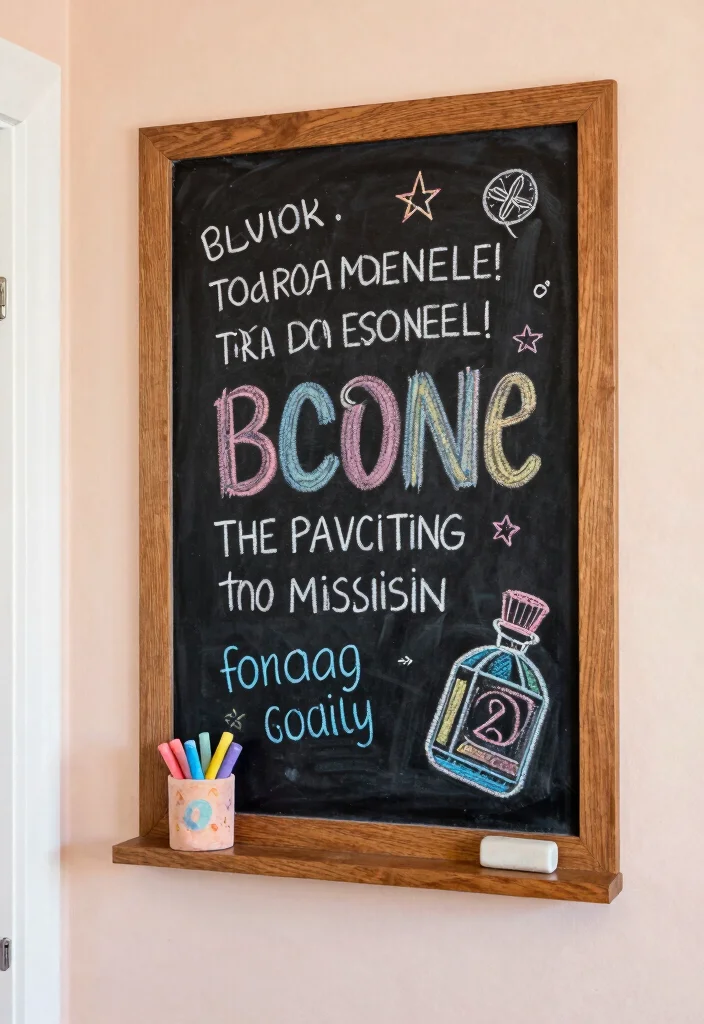 BLVIOK.
TOdROA MDENELE!
ESONEEL!
BCONe
THE PAVCITING
tno MissIisIN
fonaag
Goaily
2